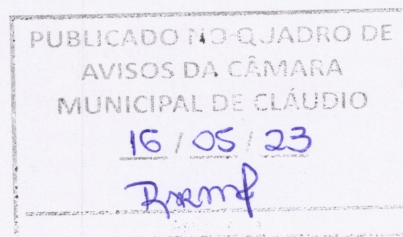 PUBLICADO NO QUADRO DE
AVISOS DA CÂMARA
MUNICIPAL DE CLÁUDIO
16 / 05 / 23